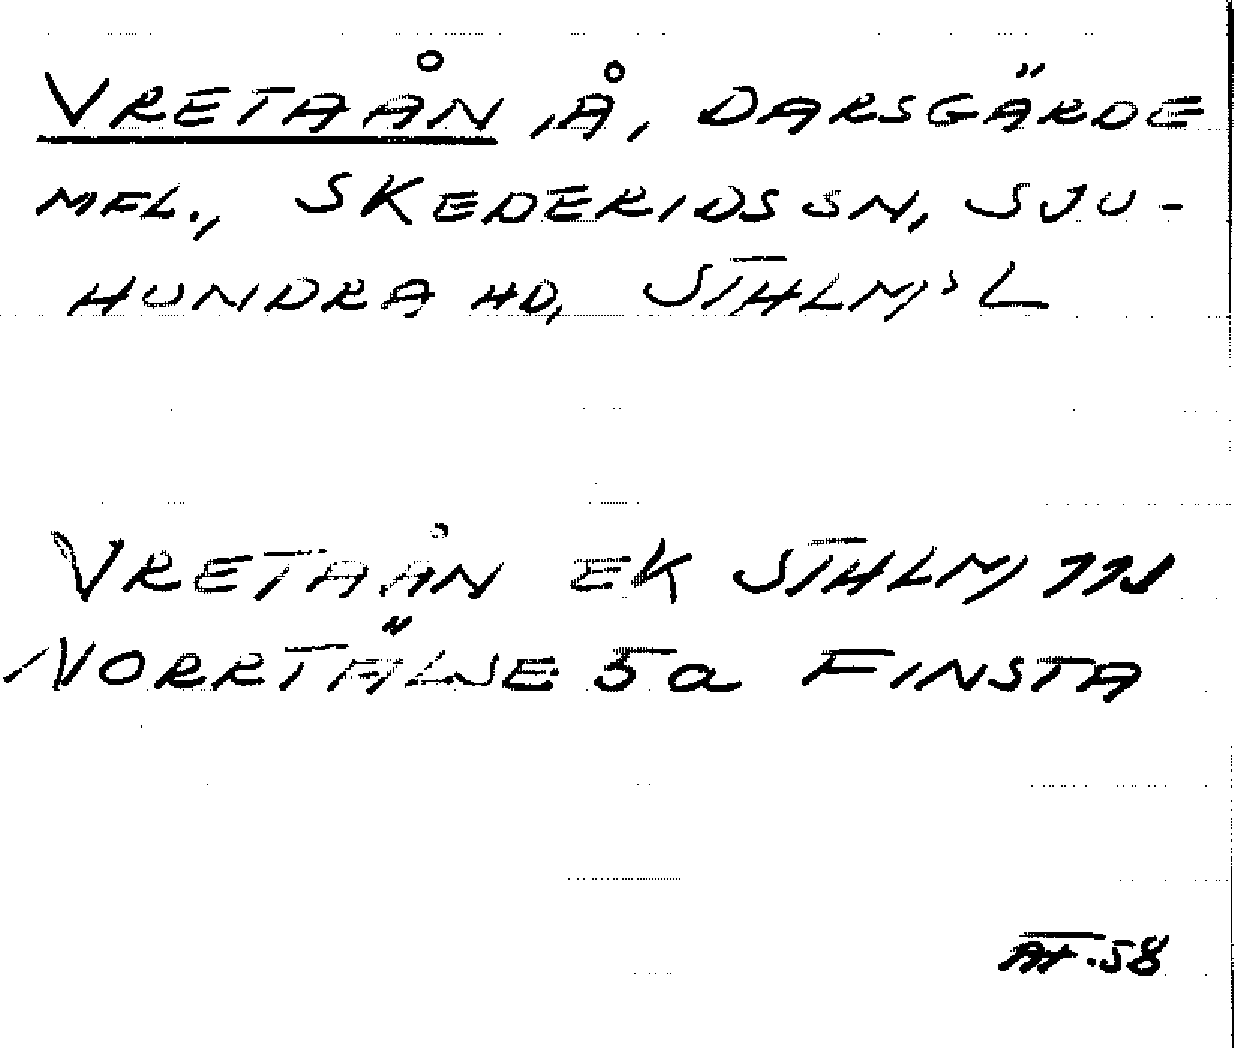 VRETAÅN, Å, DARSGÄRDE
MFL., SKEDERIDS SN, SJU-
HUNDRA HD, STHLM,S L
VRETAÅN EK STHLM 111
NORRTÄLJE 5a FINSTA
AH-58